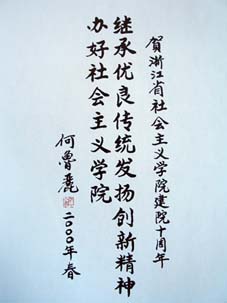 贺浙江省社会主义学院建院十周年
继承优良传统发扬创新精神
办好社会主义学院
何鲁丽
二〇〇〇年春